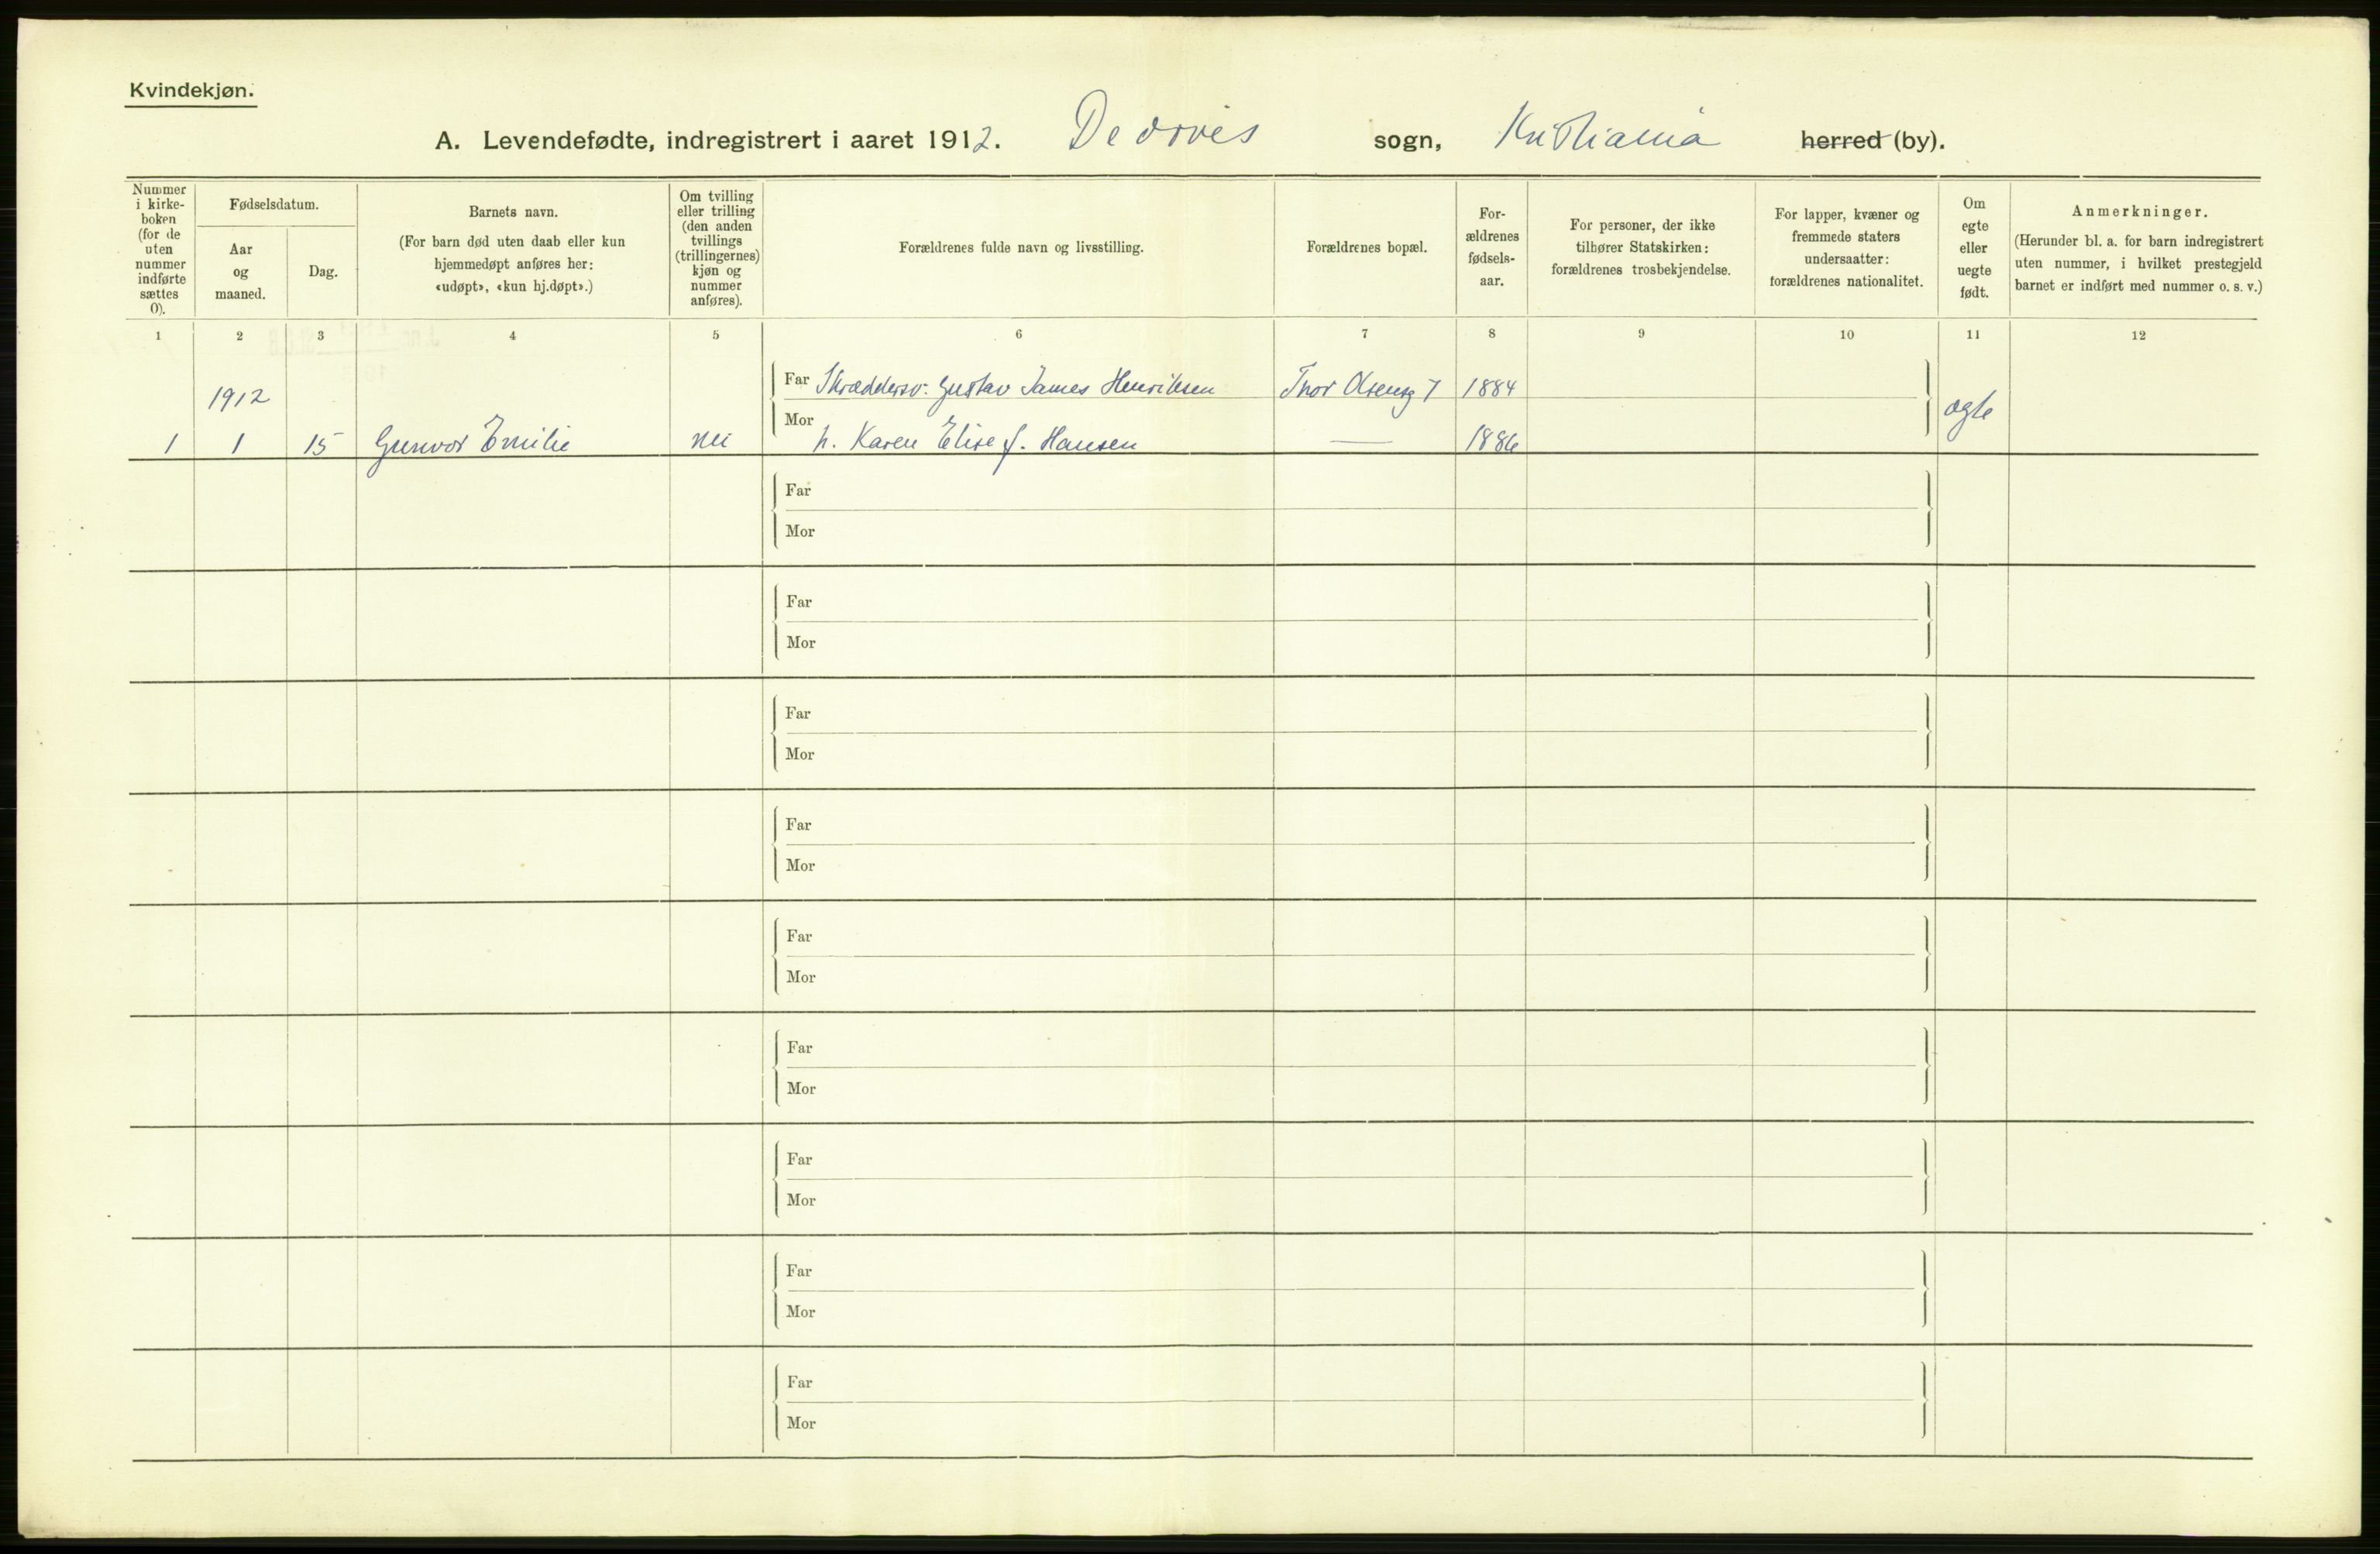 Kvindekjøn.
A. Levendefødte, indregistrert i aaret 1912. De døves sogn, Kristiania herred (by).
Nummer i kirke-boken (for de uten nummer indførte sættes 0).
Fødselsdatum.
Aar og maaned.
Dag.
Barnets navn.
(For barn død uten daab eller kun hjemmedøpt anføres her: «udøpt», «kun hj.døpt».)
Om tvilling eller trilling (den anden tvillings (trillingernes) kjøn og nummer anføres).
Forældrenes fulde navn og livsstilling.
Forældrenes bopæl.
For-ældrenes fødsels-aar.
For personer, der ikke tilhører Statskirken: forældrenes trosbekjendelse.
For lapper, kvæner og fremmede staters undersaatter: forældrenes nationalitet.
Om egte eller uegte født.
Anmerkninger.
(Herunder bl. a. for barn indregistrert uten nummer, i hvilket prestegjeld barnet er indført med nummer o. s. v.)
1 2 3 4 5 6 7 8 9 10 11 12
1912 Far Skræddersv. Gustav James Henriksen Thor Olsensg 7 1884
ægte
1 1 15 Gunvor Emilie nei Mor h. Karen Elise f. Hansen — 1886
Far
Mor
Far
Mor
Far
Mor
Far
Mor
Far
Mor
Far
Mor
Far
Mor
Far
Mor
Far
Mor